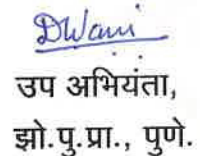 DWani
उप अभियंता,
झो.पु.प्रा., पुणे.